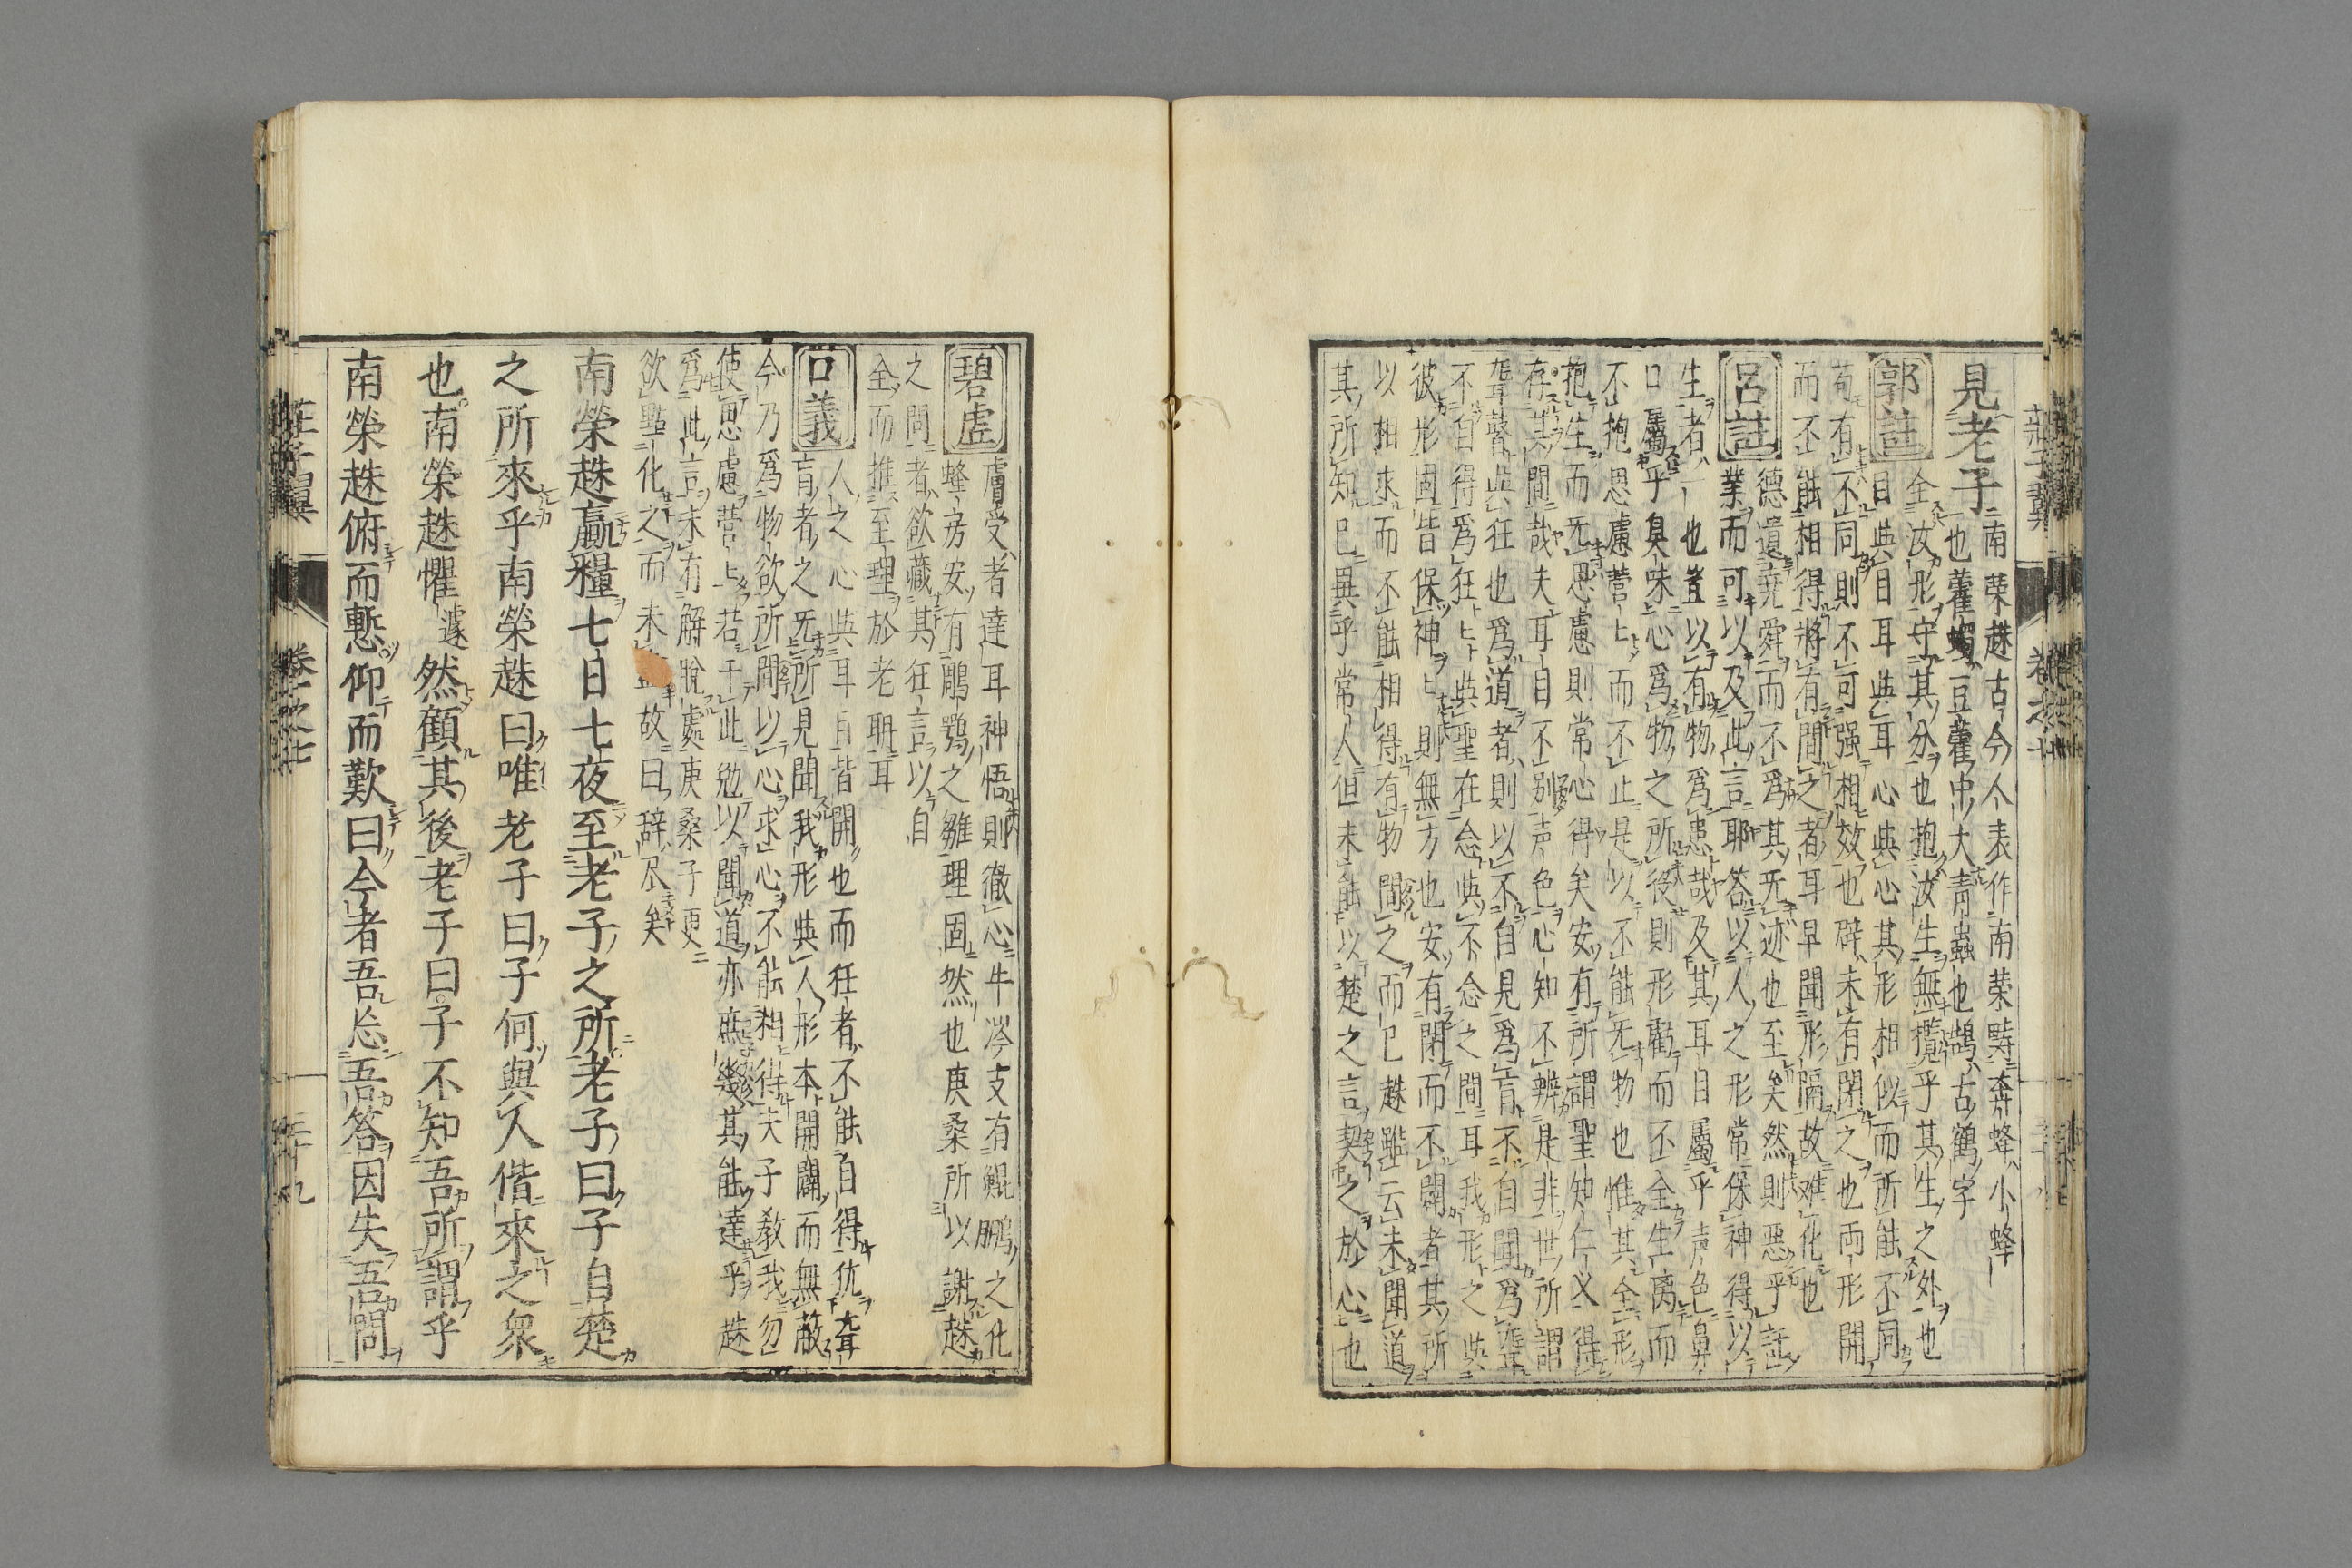 見老子
南荣趎古今人表作南荣疇奔蜂小蜂
也藿蠋豆藿中大青蟲也鵠古鶴字
郭註
全汝形守其分也抱汝生無攬乎其生之外也
目與目耳與耳心與心其形相似而所能不同
苟有不同則不可强相效也辟未有閉之也両形開
而不能相得將有間之者耳早聞形隔故难化也
呂註
德遺尭舜而不爲其无迹也至矣然則惡乎託
業而可以及此言耶答以人之形常保神得以
生者一也豈以有物爲患哉及其耳目屬乎声色鼻
口屬乎臭味心爲物之所役則形勸而不全生离而
不抱思慮營ヒ而不止是以不能无物也惟其全形
抱生而无思慮則常心得矣安有所謂聖知仁义得
存其間哉夫耳目不别声色心知不辨是非世所謂
聾瞽與狂也爲道者則以不自見爲盲不自聞爲聾
不自得爲狂ヒ與聖在念與不念之間耳我形之與
彼形固皆保神ヒ則無方也安有閉而不闢者其所
以相求而不能相得有物間之而已趎雖云未聞道
其所知已異乎常人但未能以楚之言契之於心也
碧虚
膚受者達耳神悟則徹心牛涔支有鯤鵬之化
蜂房安有鵰鶚之雛理固然也庚桑所以謝趎
之問者欲藏其狂言以自
全而推至理於老聃耳
口義
人之心與耳目皆開也而狂者不能自得犹聾
盲者之无所見聞我形與人形本開闢而無蔽
今乃爲物欲所間以心求心不能相得夫子教我勿
使思慮營ヒ若干此勉以聞道亦庶幾其能達乎趎
爲此言未有解脫處庚桑子更
欲點化之而未故曰辞尽矣
南榮趎贏糧七日七夜至老子之所老子曰子自楚
之所來乎南榮趎曰唯老子曰子何與人偕來之衆
也南榮趎懼遽然顧其後老子曰子不知吾所謂乎
南榮趎俯而慙仰而歎曰今者吾忘吾答因失吾問